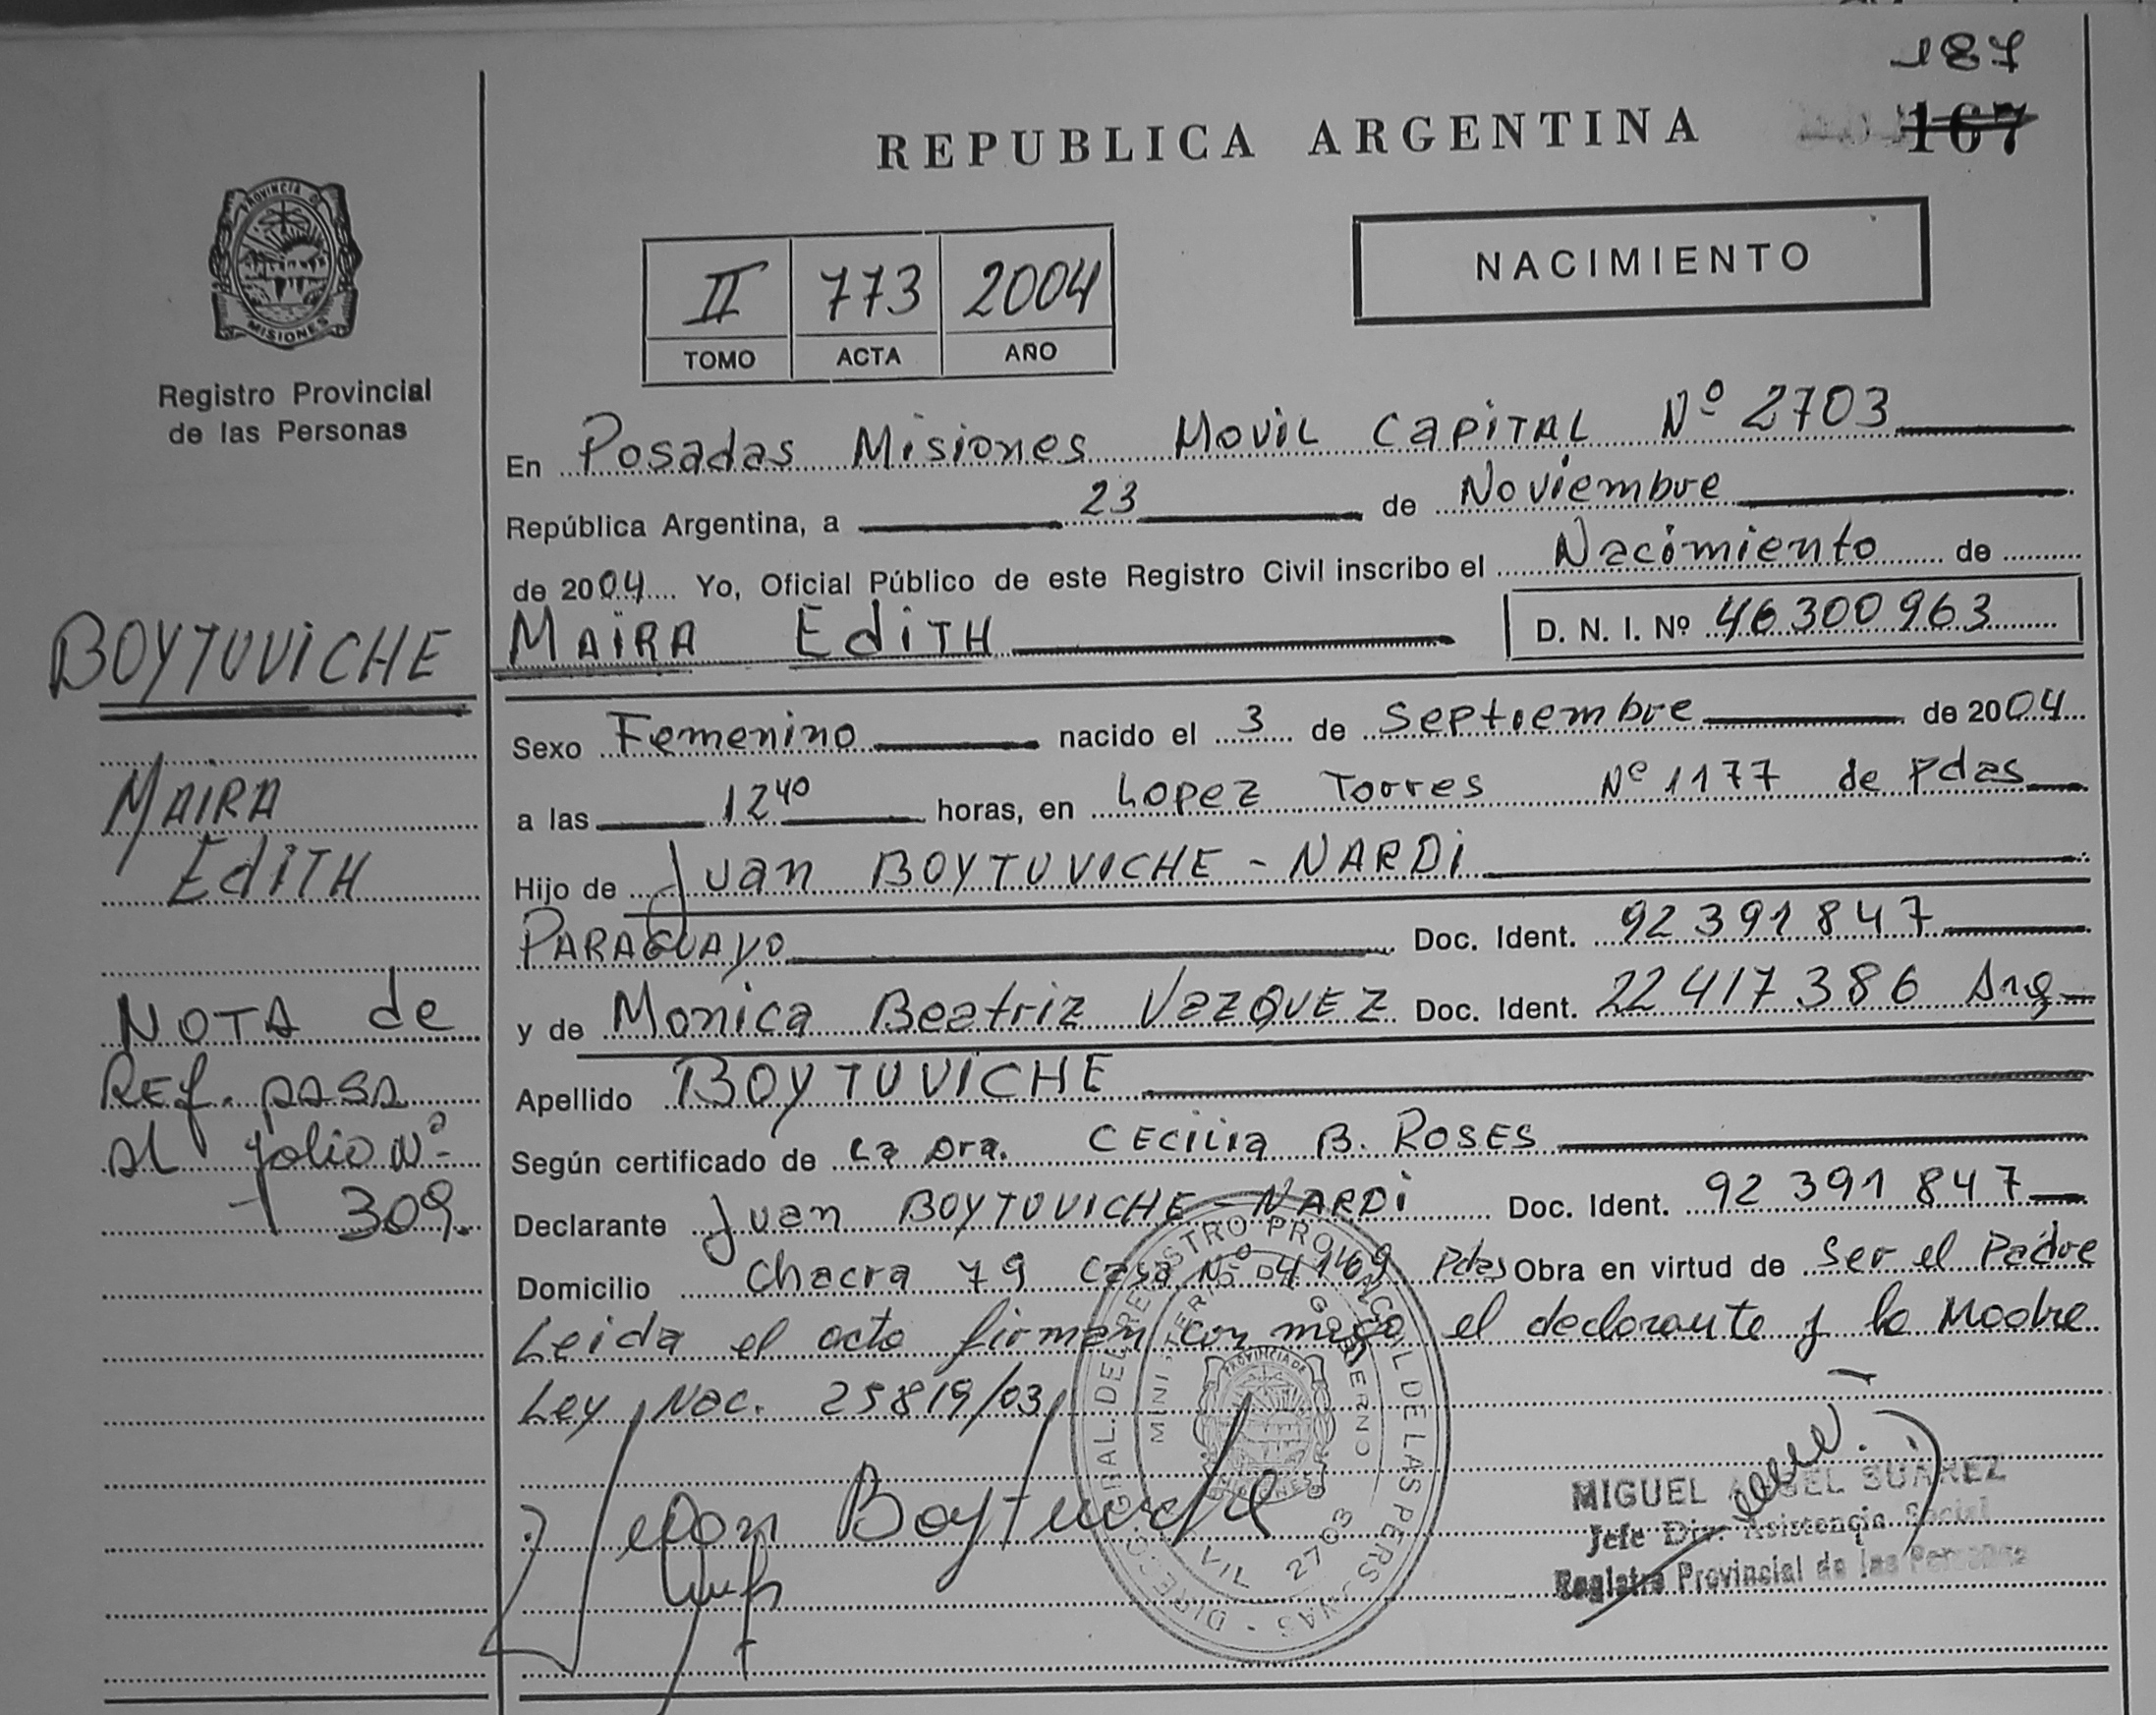 187
REPUBLICA ARGENTINA
167
PROVINCIA DE
MISIONES
Registro Provincial
de las Personas
II 773 2004
TOMO ACTA AÑO
NACIMIENTO
En Posadas Misiones Movil Capital Nº 2703
República Argentina, a 23 de Noviembre
de 2004 Yo, Oficial Público de este Registro Civil inscribo el Nacimiento de
MAIRA EdiTH D. N. I. Nº 46300963
BOYTUViCHE
MAIRA
EdiTH
NOTA de
REf. pasa
al folio Nº
309
Sexo Femenino nacido el 3 de Septiembre de 2004
a las 12 40 horas, en Lopez Torres Nº 1177 de Pdas
Hijo de Juan BOYTUVICHE - NARDi
PARAGUAYO Doc. Ident. 92 391 847
y de Monica Beatriz VazQUEZ Doc. Ident. 22417386 Arg
Apellido BOYTUViCHE
Según certificado de La Dra. CECilia B. ROSES
Declarante Juan BOYTUVICHE - NARDi Doc. Ident. 92 391 847
Domicilio Chacra 79 Casa Nº 4169 Pdas Obra en virtud de Ser el Padre
Leida el acta firman con migo el declarante y la Madre
Ley Nac. 25819/03
Boytuviche
DIREC. GRAL. DEL REGISTRO PROVINCIAL DE LAS PERSONAS
MINISTERIO DE GOBIERNO
PROVINCIA DE
MISIONES
2703
MIGUEL ANGEL SUAREZ
Jefe Div. Asistencia Social
Registro Provincial de las Personas